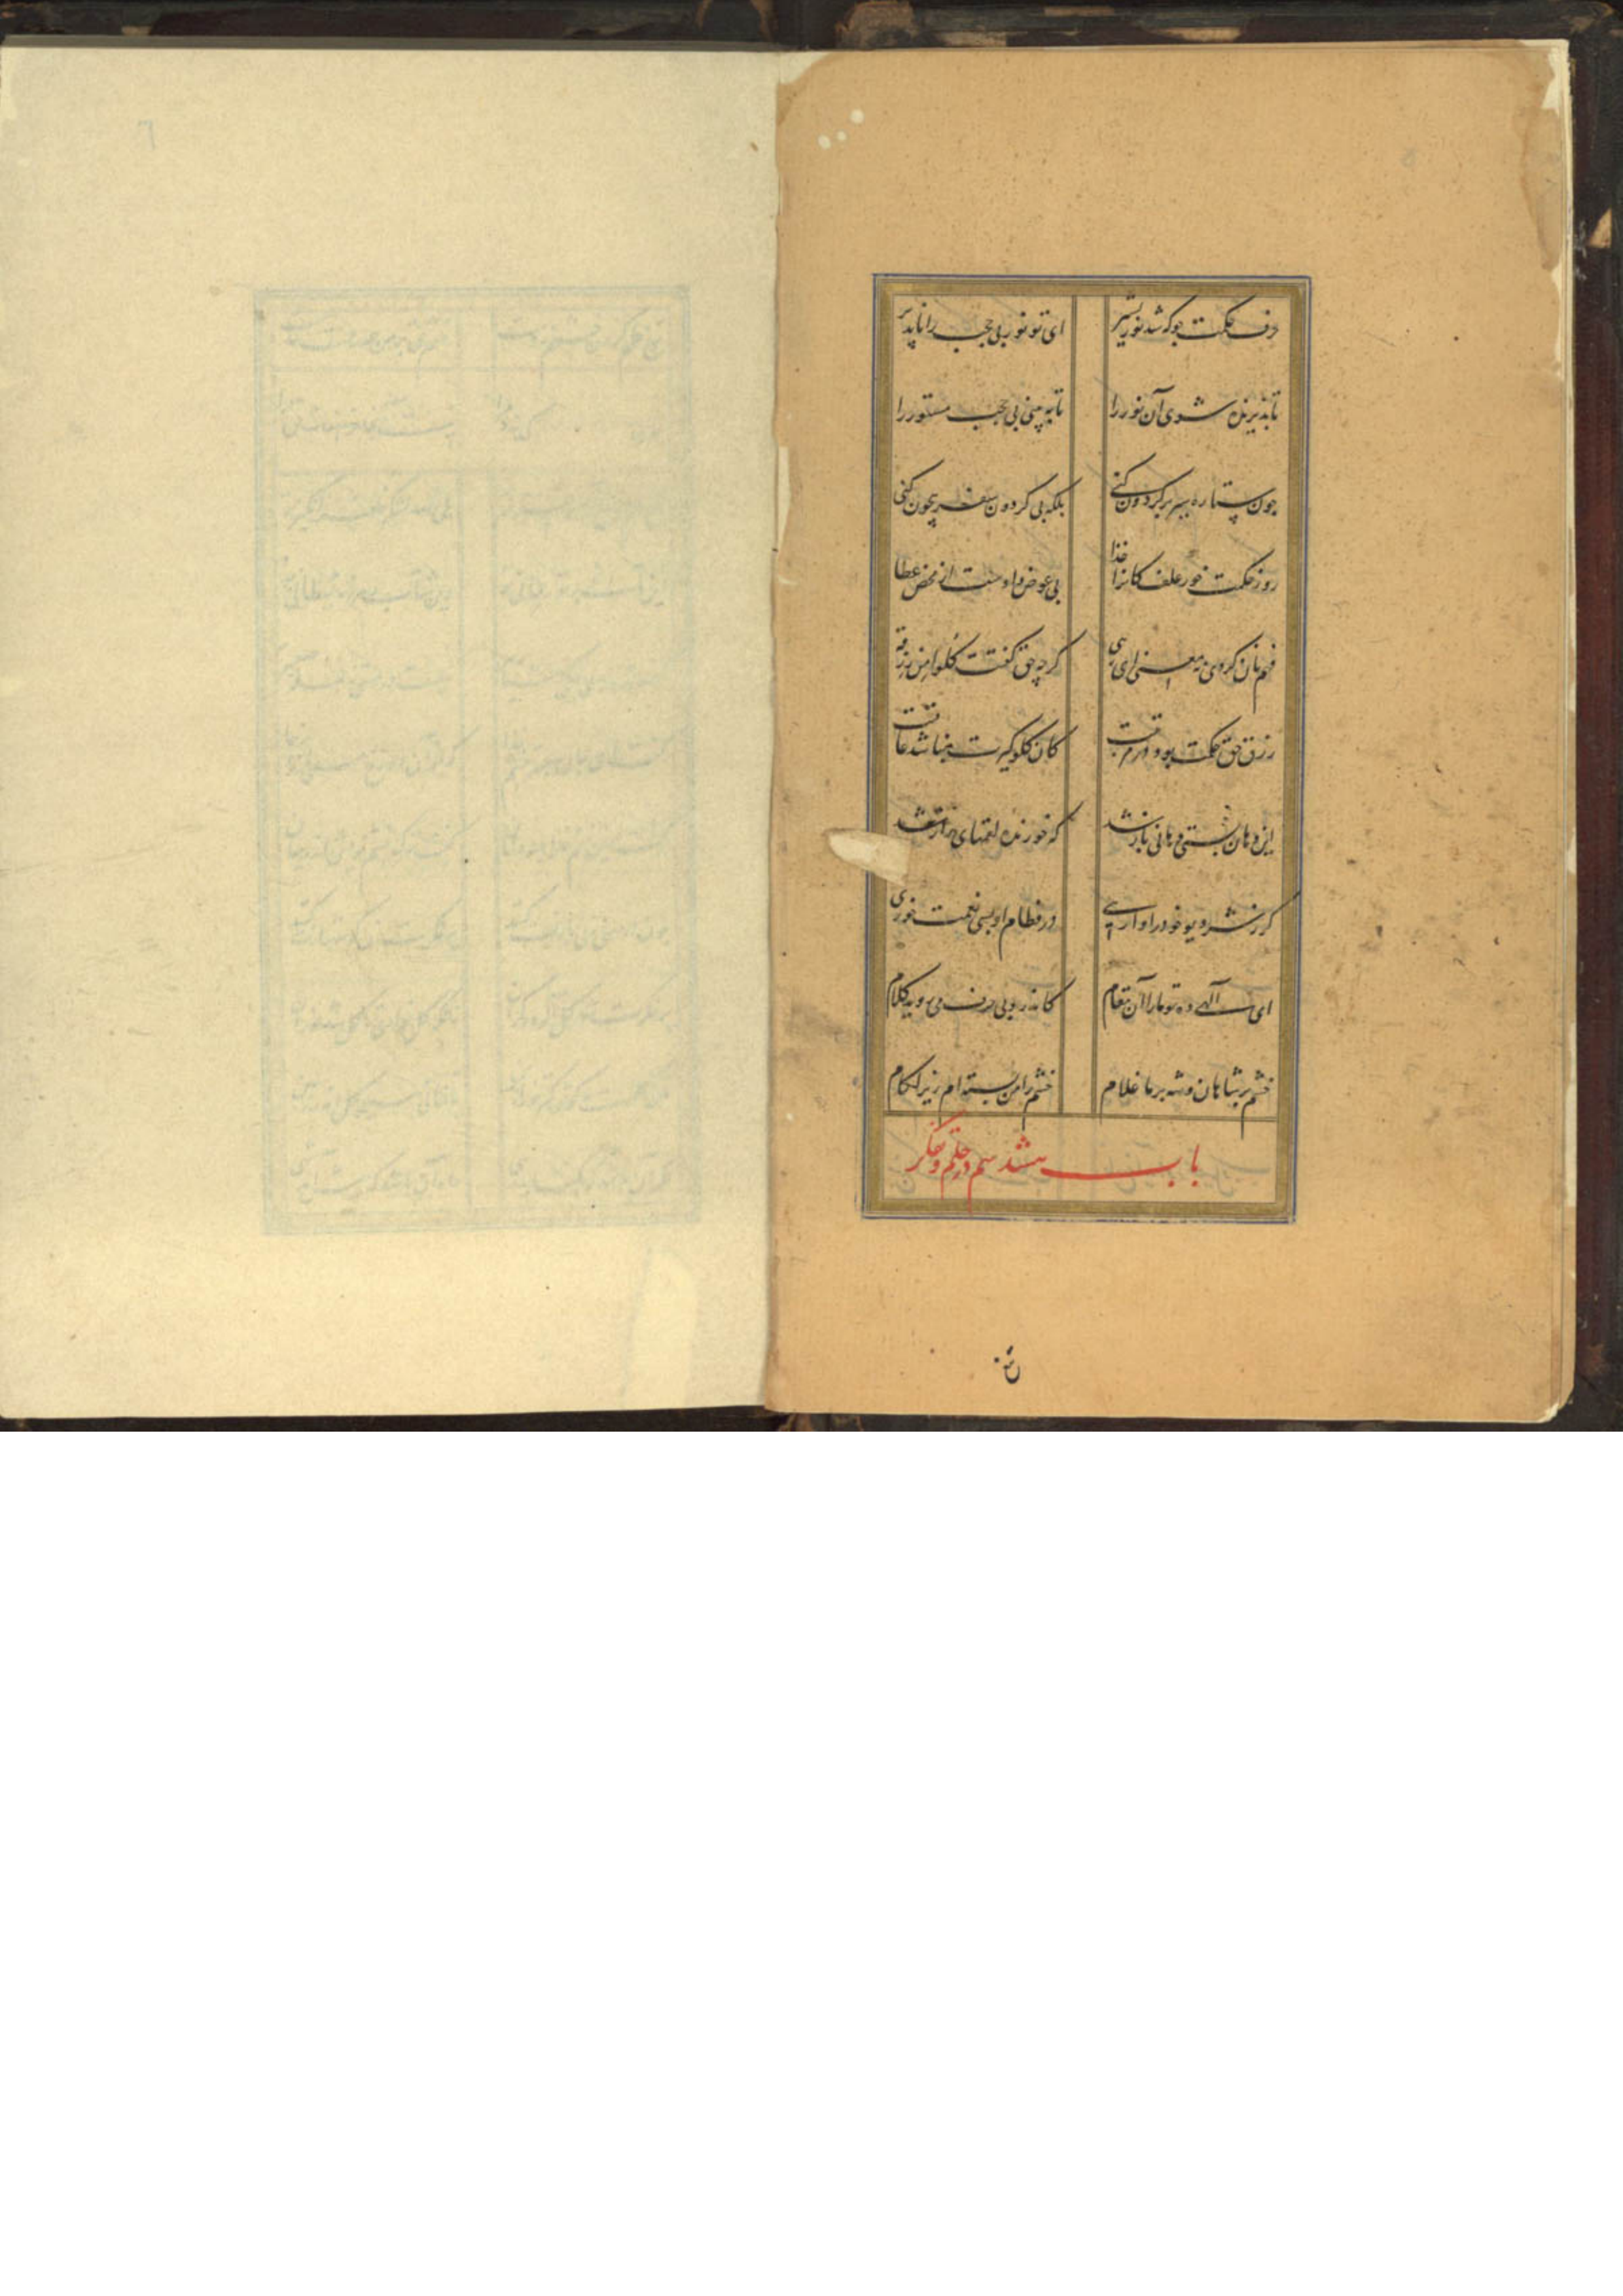 حرف حکمت جو که شد نور ستیر ای تو نور بی حجب را ناپذیر
تا پذیرنده شوی آن نور را تا به بینی بی حجب مستور را
چون ستاره سیر بر گردون کنی بلکه بی گردون سفر بیچون کنی
روز حکمت خور علف کانرا خدا بی عوض دادست از محض عطا
فهم نان کردی نه معنی ای رهی گرچه حق گفتت کلوا من رزقه
رزق حق حکمت بود در مرتبت کان گلوگیرت نباشد عاقبت
این دهان بستی دهانی باز شد که خورنده لقمهای راز شد
گر ز شر دیو خود را وا بری در فطام او بسی نعمت خوری
ای الهی ده تو ما را آن مقام کاندرو بی حرف می روید کلام
خشم بر شاهان و شه بر ما غلام خشم را من بسته ام زیر لگام
باب سیم در حلم و